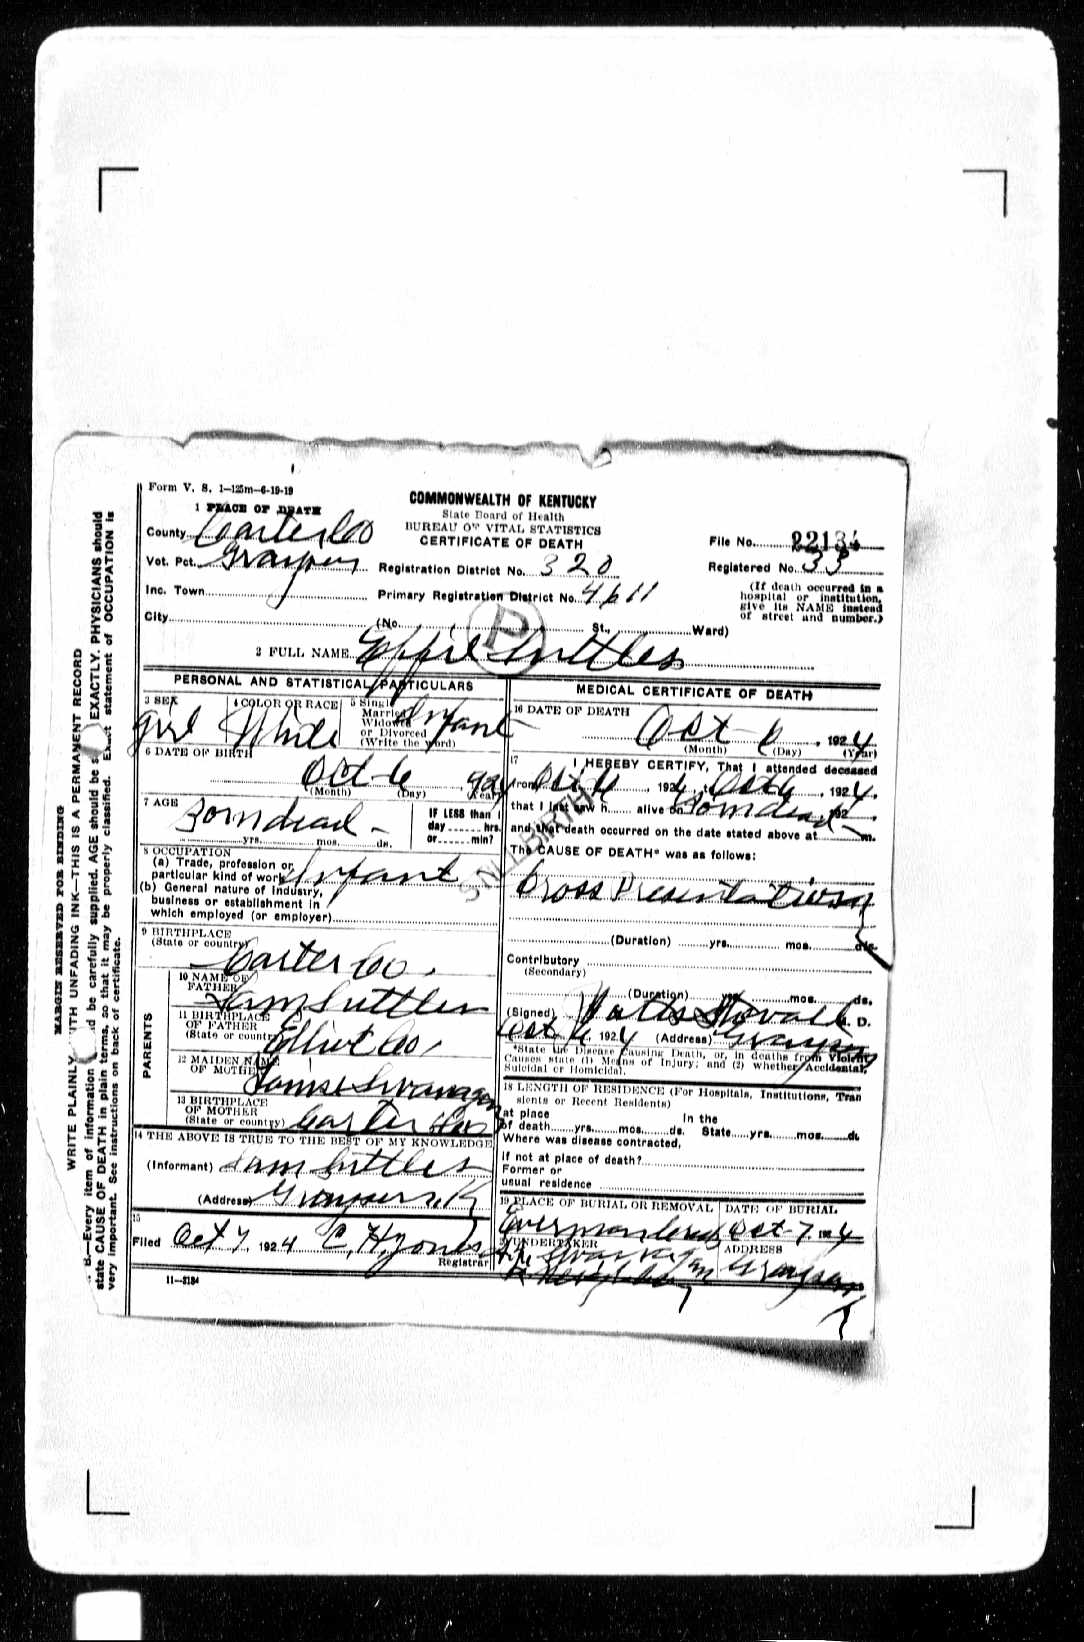 Form V. S. 1-125m-6-19-19
COMMONWEALTH OF KENTUCKY
State Board of Health
BUREAU OF VITAL STATISTICS
CERTIFICATE OF DEATH
1 PLACE OF DEATH
County Carter Co
Vot. Pct. Grayson
Inc. Town
City
Registration District No. 320
Primary Registration District No. 4611
(No. St., Ward)
File No. 22134
Registered No. 33
(If death occurred in a
hospital or institution,
give its NAME instead
of street and number.)
P
2 FULL NAME Effie Suttles
PERSONAL AND STATISTICAL PARTICULARS
3 SEX
girl
4 COLOR OR RACE
White
5 Single
Married
Widowed
or Divorced
(Write the word)
Infant
6 DATE OF BIRTH
Oct 6 1924
(Month) (Day) (Year)
7 AGE
Born dead
yrs. mos. ds.
IF LESS than 1
day hrs.
or min?
8 OCCUPATION
(a) Trade, profession or
particular kind of work Infant
(b) General nature of Industry,
business or establishment in
which employed (or employer)
9 BIRTHPLACE
(State or country)
Carter Co.
PARENTS
10 NAME OF
FATHER
Sam Suttles
11 BIRTHPLACE
OF FATHER
(State or country)
Elliot Co.
12 MAIDEN NAME
OF MOTHER
13 BIRTHPLACE
OF MOTHER
(State or country) Carter Co
14 THE ABOVE IS TRUE TO THE BEST OF MY KNOWLEDGE
(Informant) Sam Suttles
(Address) Grayson, K
15
Filed Oct 7, 1924 C. H. Jones
Registrar
11-3184
MEDICAL CERTIFICATE OF DEATH
16 DATE OF DEATH
Oct 6, 1924
(Month) (Day) (Year)
17
I HEREBY CERTIFY, That I attended deceased
from Oct 6, 1924, Oct 6, 1924.
that I last saw h alive on Born dead, 192
and that death occurred on the date stated above at m.
STILLBIRTH
The CAUSE OF DEATH* was as follows:
Cross Presentation
(Duration) yrs. mos. ds.
Contributory
(Secondary)
(Duration) yrs. mos. ds.
(Signed) Stovall M. D.
Oct 6, 1924 (Address) Grayson
*State the Disease Causing Death, or, in deaths from Violent
Causes state (1) Means of Injury; and (2) whether Accidental,
Suicidal or Homicidal.
18 LENGTH OF RESIDENCE (For Hospitals, Institutions, Tran
sients or Recent Residents)
at place In the
of death yrs. mos. ds. State yrs. mos. ds.
Where was disease contracted,
if not at place of death?
Former or
usual residence
19 PLACE OF BURIAL OR REMOVAL
DATE OF BURIAL
Oct 7, 1924
UNDERTAKER
ADDRESS
Grayson
MARGIN RESERVED FOR BINDING
WRITE PLAINLY WITH UNFADING INK—THIS IS A PERMANENT RECORD
B.—Every item of information should be carefully supplied. AGE should be s EXACTLY. PHYSICIANS should
state CAUSE OF DEATH in plain terms, so that it may be properly classified. Exact statement of OCCUPATION is
very important. See instructions on back of certificate.